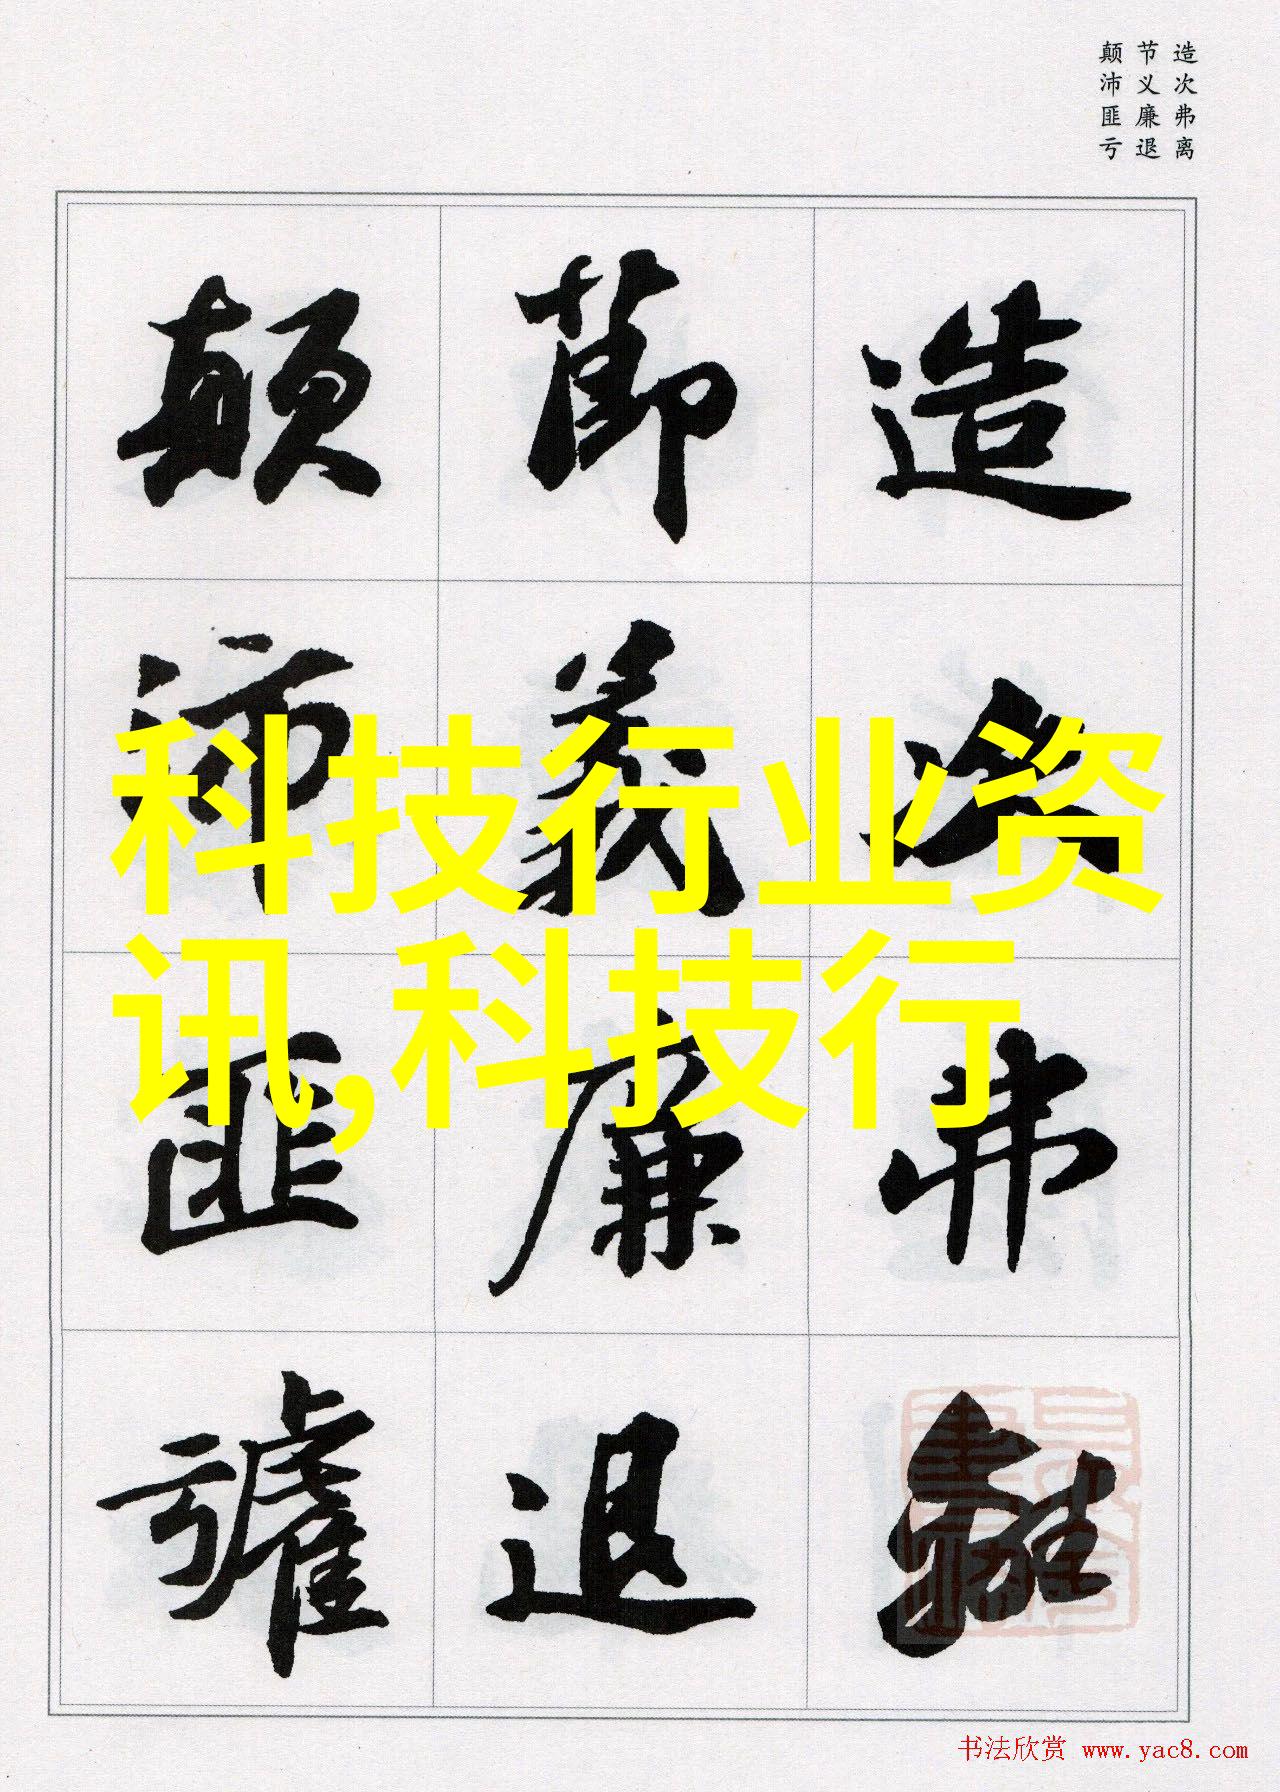 造次弗离
节义廉退
颠沛匪亏
造次弗離
節義廉退
顛沛匪虧
科技行业资
讯,科技行
书法欣赏 www.yac8.com